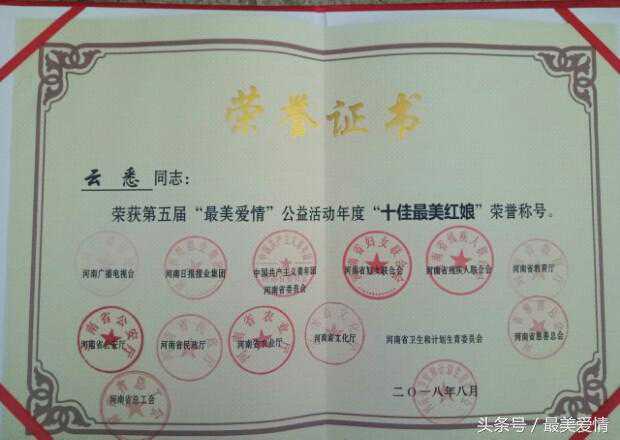 荣誉证书
云悉 同志：
荣获第五届“最美爱情”公益活动年度“十佳最美红娘”荣誉称号。
河南广播电视台 河南日报报业集团 中国共产主义青年团河南省委员会 河南省妇女联合会 河南省残疾人联合会 河南省教育厅
河南省公安厅 河南省民政厅 河南省农业厅 河南省文化厅 河南省卫生和计划生育委员会 河南省慈善总会
河南省总工会
二〇一八年八月
头条号 / 最美爱情